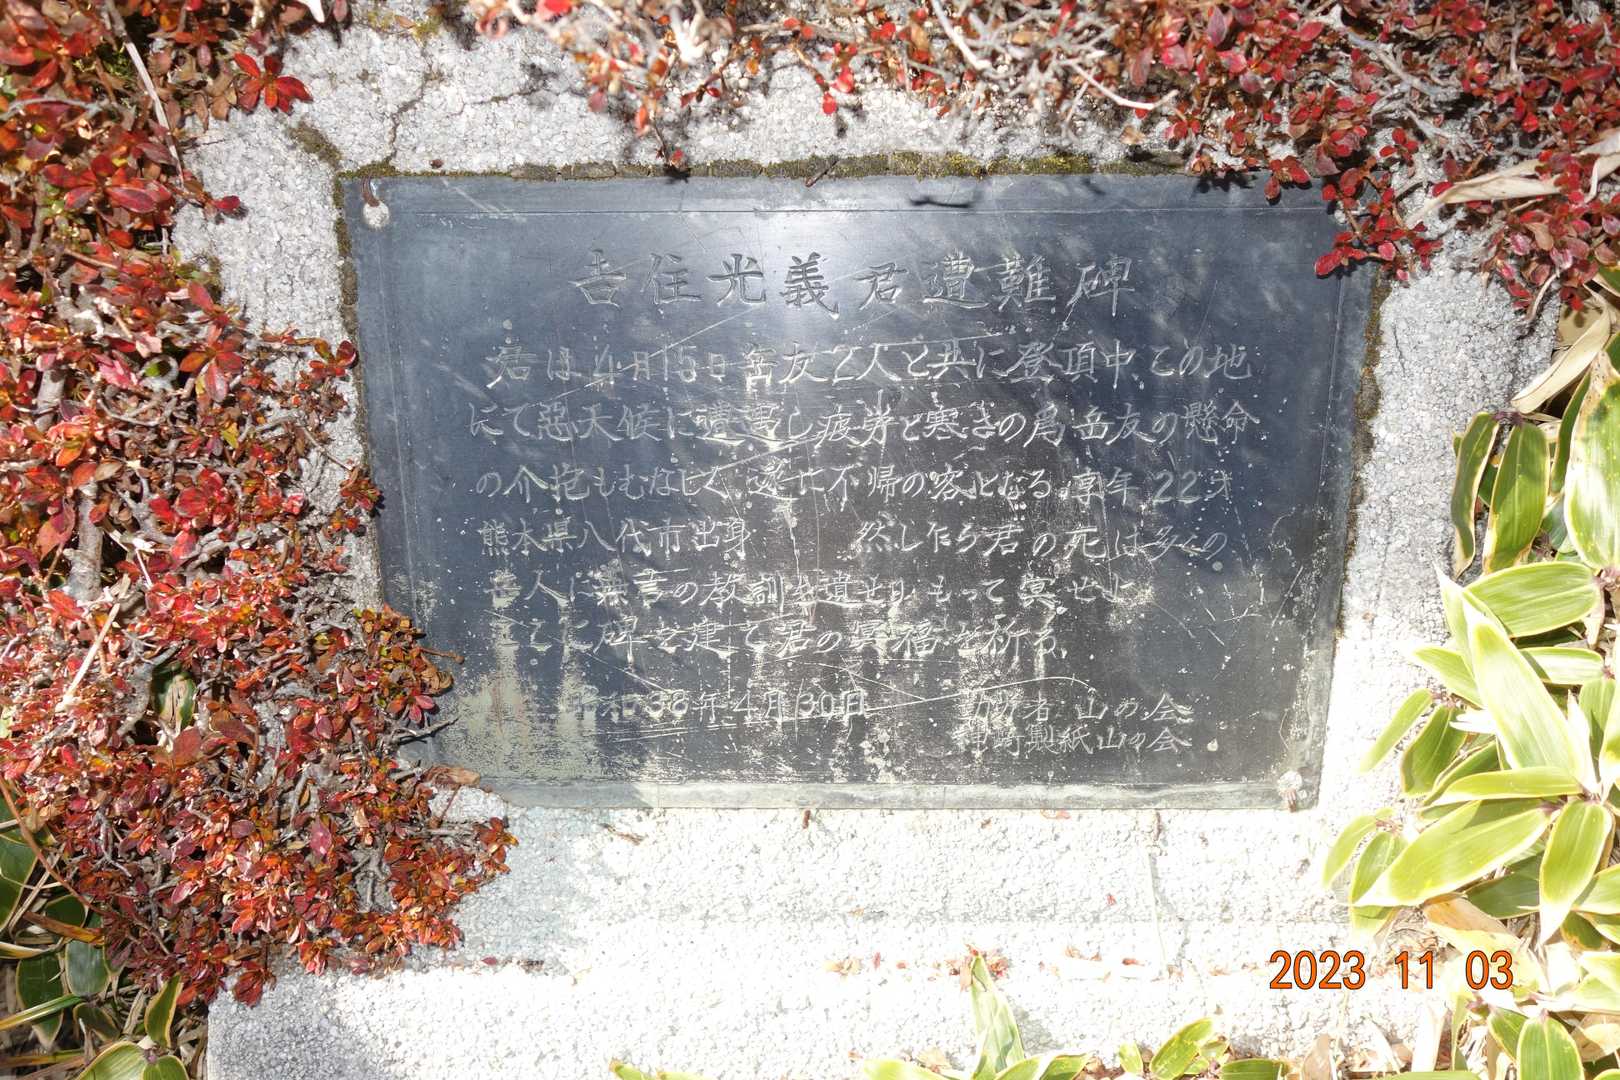 吉住光義君遭難碑
君は4月15日岳友2人と共に登頂中、この地
にて惡天候に遭遇し疲労と寒さの爲岳友の懸命
の介抱もむなしく遂に不帰の客となる 享年22才
熊本県八代市出身 然しながら君の死は多くの
岳人に無言の教訓を遺せり もって冥せよ
ここに碑を建て君の冥福を祈る
昭和38年4月30日 山の会
神崎製紙山の会
2023 11 03